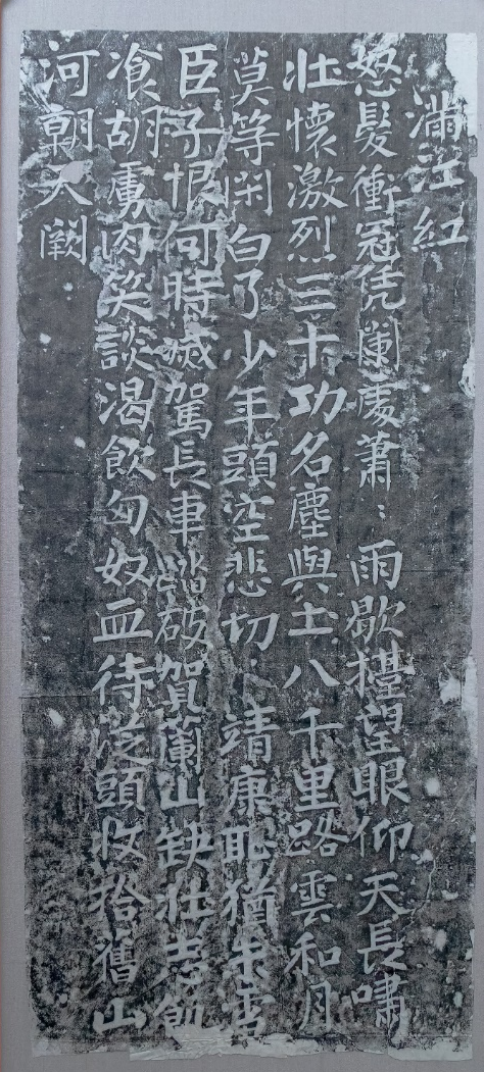 滿江紅
怒髮衝冠凭闌處蕭〻雨歇擡望眼仰天長嘯
壮懷激烈三十功名塵與土八千里路雲和月
莫等閑白了少年頭空悲切靖康恥猶未雪
臣子恨何時滅駕長車踏破賀蘭山缺壮志飢
飡胡虜肉笑談渴飲匈奴血待從頭收拾舊山
河朝天闕